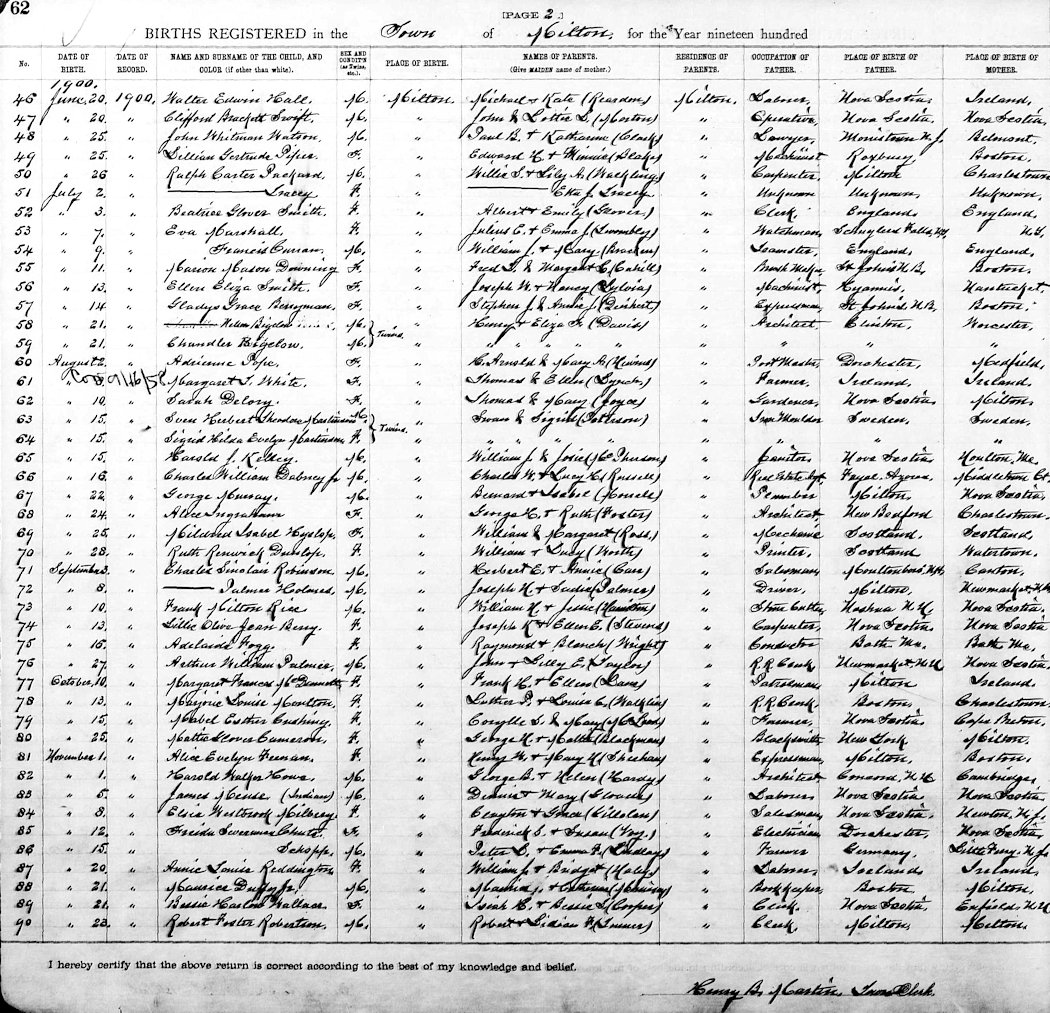 62
[PAGE 2.]
BIRTHS REGISTERED in the Town of Milton, for the Year nineteen hundred
No. DATE OF BIRTH. DATE OF RECORD. NAME AND SURNAME OF THE CHILD, AND COLOR (if other than white). SEX AND CONDIT'N (as Twins, etc.) PLACE OF BIRTH. NAMES OF PARENTS. (Give MAIDEN name of mother.) RESIDENCE OF PARENTS. OCCUPATION OF FATHER. PLACE OF BIRTH OF FATHER. PLACE OF BIRTH OF MOTHER.
1900.
46 June 20. 1900. Walter Edwin Hall. M. Milton. Michael & Kate (Reardon) Milton. Laborer, Nova Scotia, Ireland,
47 " 20. " Clifford Brackett Swift, M. " John & Lottie L. (Morton) " Operative Nova Scotia. Nova Scotia,
48 " 25. " John Whitman Watson, M. " Paul B. & Katharine (Clark) " Lawyer, Morristown N.J. Belmont,
49 " 25. " Lillian Gertrude Piper. F. " Edward H. & Minnie (Blake) " Machinist Roxbury, Boston.
50 " 26 " Ralph Carter Packard, M. " Willie S. & Lily A. " Carpenter, Milton Charlestown
51 July 2. " Tracey F. " Etta J. Tracey " Unknown Unknown, Unknown,
52 " 3. " Beatrice Glover Smith. F. " Albert & Emily (Glover) " Clerk England, England,
53 " 7. " Eva Marshall. F. " Julius E. & Emma J. (Twombly) " Watchman, Schuylers Falls, N.Y. N.Y.
54 " 9. " Francis Curran, M. " William J. & Mary (Bracken) " Teamster, England, England,
55 " 11. " Marion Mason Downing F. " Fred L. & Margaret C. (Cahill) " St John's N.B, Boston.
56 " 13. " Ellen Eliza Smith. F. " Joseph W. & Nancy (Sylvia) " Machinist, Hyannis, Nantucket
57 " 14 " Gladys Grace Berryman, F. " Stephen J. & Annie J. " Expressman, St John's N.B. Boston.
58 " 21. " Nelson Bigelow M. Twins. " Henry & Eliza F. (Davis) " Architect, Clinton, Worcester,
59 " 21. " Chandler Bigelow, M. " " " " " "
60 August 2, " Adrienne Pope, F. " H. Arnold & Mary A. " Post Master, Dorchester, Medfield,
61 Corr 9/16/58 " Margaret T. White. F. " Thomas & Ellen (Lynch) " Farmer, Ireland, Ireland.
62 " 10. " Sarah Delory. F. " Thomas & Mary (Joyce) " Gardener, Nova Scotia, Milton,
63 " 15. " Sven Herbert Theodore Martinson M. Twins. " Swan & Sigrid (Peterson) " Iron Moulder Sweden, Sweden,
64 " 15. " Sigrid Hilda Evelyn Martinson, F. " " " " " "
65 " 15. " Harold J. Kelley. M. " William J. & Josie (McPherson) " Janitor Nova Scotia Houlton, Me.
66 " 16. " Charles William Dabney Jr M. " Charles W. & Lucy H. (Russell) " Real Estate Agt Fayal, Azores, Middletown Ct.
67 " 22. " George Murray. M. " Bernard & Isabel " Plumber Milton, Nova Scotia.
68 " 24. " Alice Ingraham F. " George H. & Ruth (Foster) " Architect, New Bedford Charlestown.
69 " 25. " Mildred Isabel Hyslop. F. " William & Margaret (Ross) " Mechanic Scotland, Scotland,
70 " 28. " Ruth Renwick Dunlop, F. " William & Lucy (Worth) " Printer, Scotland Watertown.
71 September 3. " Charles Sinclair Robinson, M. " Herbert E. & Annie (Carr) " Salesman, Moultonboro, N.H. Canton,
72 " 8. " Palmer Holmes, M. " Joseph H. & Sadie (Palmer) " Driver, Milton, Newmarket N.H.
73 " 10. " Frank Milton Rice M. " William H. & Jessie " Stone Cutter, Nashua N.H. Nova Scotia.
74 " 13. " Lillie Olive Jean Berry F. " Joseph K. & Ellen E. (Stevens) " Carpenter, Nova Scotia Nova Scotia
75 " 16. " Adelaide Fogg. F. " Raymond & Blanch (Wright) " Conductor Bath Me. Bath Me.
76 " 27. " Arthur William Palmer, M. " John & Lilly E. (Taylor) " R.R Clerk Newmarket, N.H. Nova Scotia,
77 October, 10. " Margaret Frances McDermott F. " Frank H. & Ellen (Lane) " Patrolman, Milton Ireland.
78 " 13. " Marjorie Louise Moulton, F. " Luther P. & Louise C. (Watkins) " R.R Clerk, Boston, Charlestown.
79 " 15, " Mabel Esther Cushing F. " Corylle S. & Mary (McLeod) " Farmer, Nova Scotia Cape Breton.
80 " 25. " Mattie Glover Cameron, F. " George H. & Mattie (Blackman) " Blacksmith New York Milton,
81 November 1. " Alice Evelyn Feenan. F. " Henry W. & Mary H. (Sheehan) " Expressman, Milton, Boston.
82 " 1. " Harold Walker Howe. M. " George B. & Helen (Hardy) " Architect, Concord, N.H. Cambridge,
83 " 5. " James Meuse. (Indian) M. " Dennis & Mary (Glonde) " Laborer Nova Scotia Nova Scotia.
84 " 8. " Elsie Westbrook Milbrey F. " Clayton & Grace " Salesman, Nova Scotia Newton, N.J.
85 " 12. " Freida Severman Chute. F. " Frederick S. & Susan (Foy.) " Electrician, Dorchester, Nova Scotia,
86 " 15. " Schopp, M. " Peter L. & Emma F. (Lindlay) " Farmer Germany, Little Ferry, N.J.
87 " 20. " Annie Louise Reddington, F. " William J. & Bridget (Haley) " Laborer, Ireland, Ireland,
88 " 21. " Maurice Duffy Jr. M. " Maurice J. & Catherine " Book Keeper, Boston Milton,
89 " 21. " Bessie Harlow Wallace F. " Isiah H. & Bessie L. (Cooper) " Clerk. Nova Scotia, Enfield, N.H.
90 " 23. " Robert Foster Robertson, M. " Robert & Lidian F. " Clerk, Milton, Milton,
I hereby certify that the above return is correct according to the best of my knowledge and belief.
Henry B. Martin, Town Clerk.